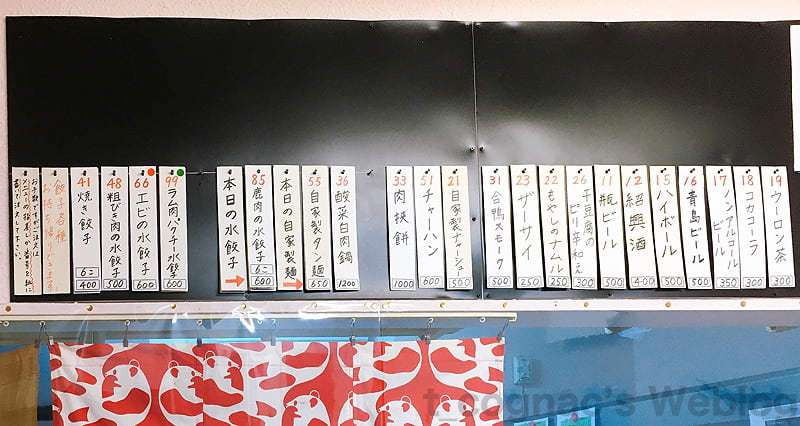 お手数ですがご注文は
メニューの
餃子各種
お持ち帰りできます
41 焼き餃子 6こ 400
48 粗びき肉の水餃子 500
66 エビの水餃子 600
99 ラム肉パクチー水餃子 600
本日の水餃子 →
85 鹿肉の水餃子 6こ 600
本日の自家製麺 →
55 自家製タン麺 650
36 酸菜白肉鍋 1200
33 肉挾餅 1000
51 チャーハン 600
21 自家製チャーシュー 500
31 合鴨スモーク 500
23 ザーサイ 250
22 もやしのナムル 250
26 干豆腐のピリ辛和え 300
11 瓶ビール 500
12 紹興酒 400
15 ハイボール
16 青島ビール 500
17 ノンアルコールビール 350
18 コカコーラ 300
19 ウーロン茶 300
t_cognac's Weblog